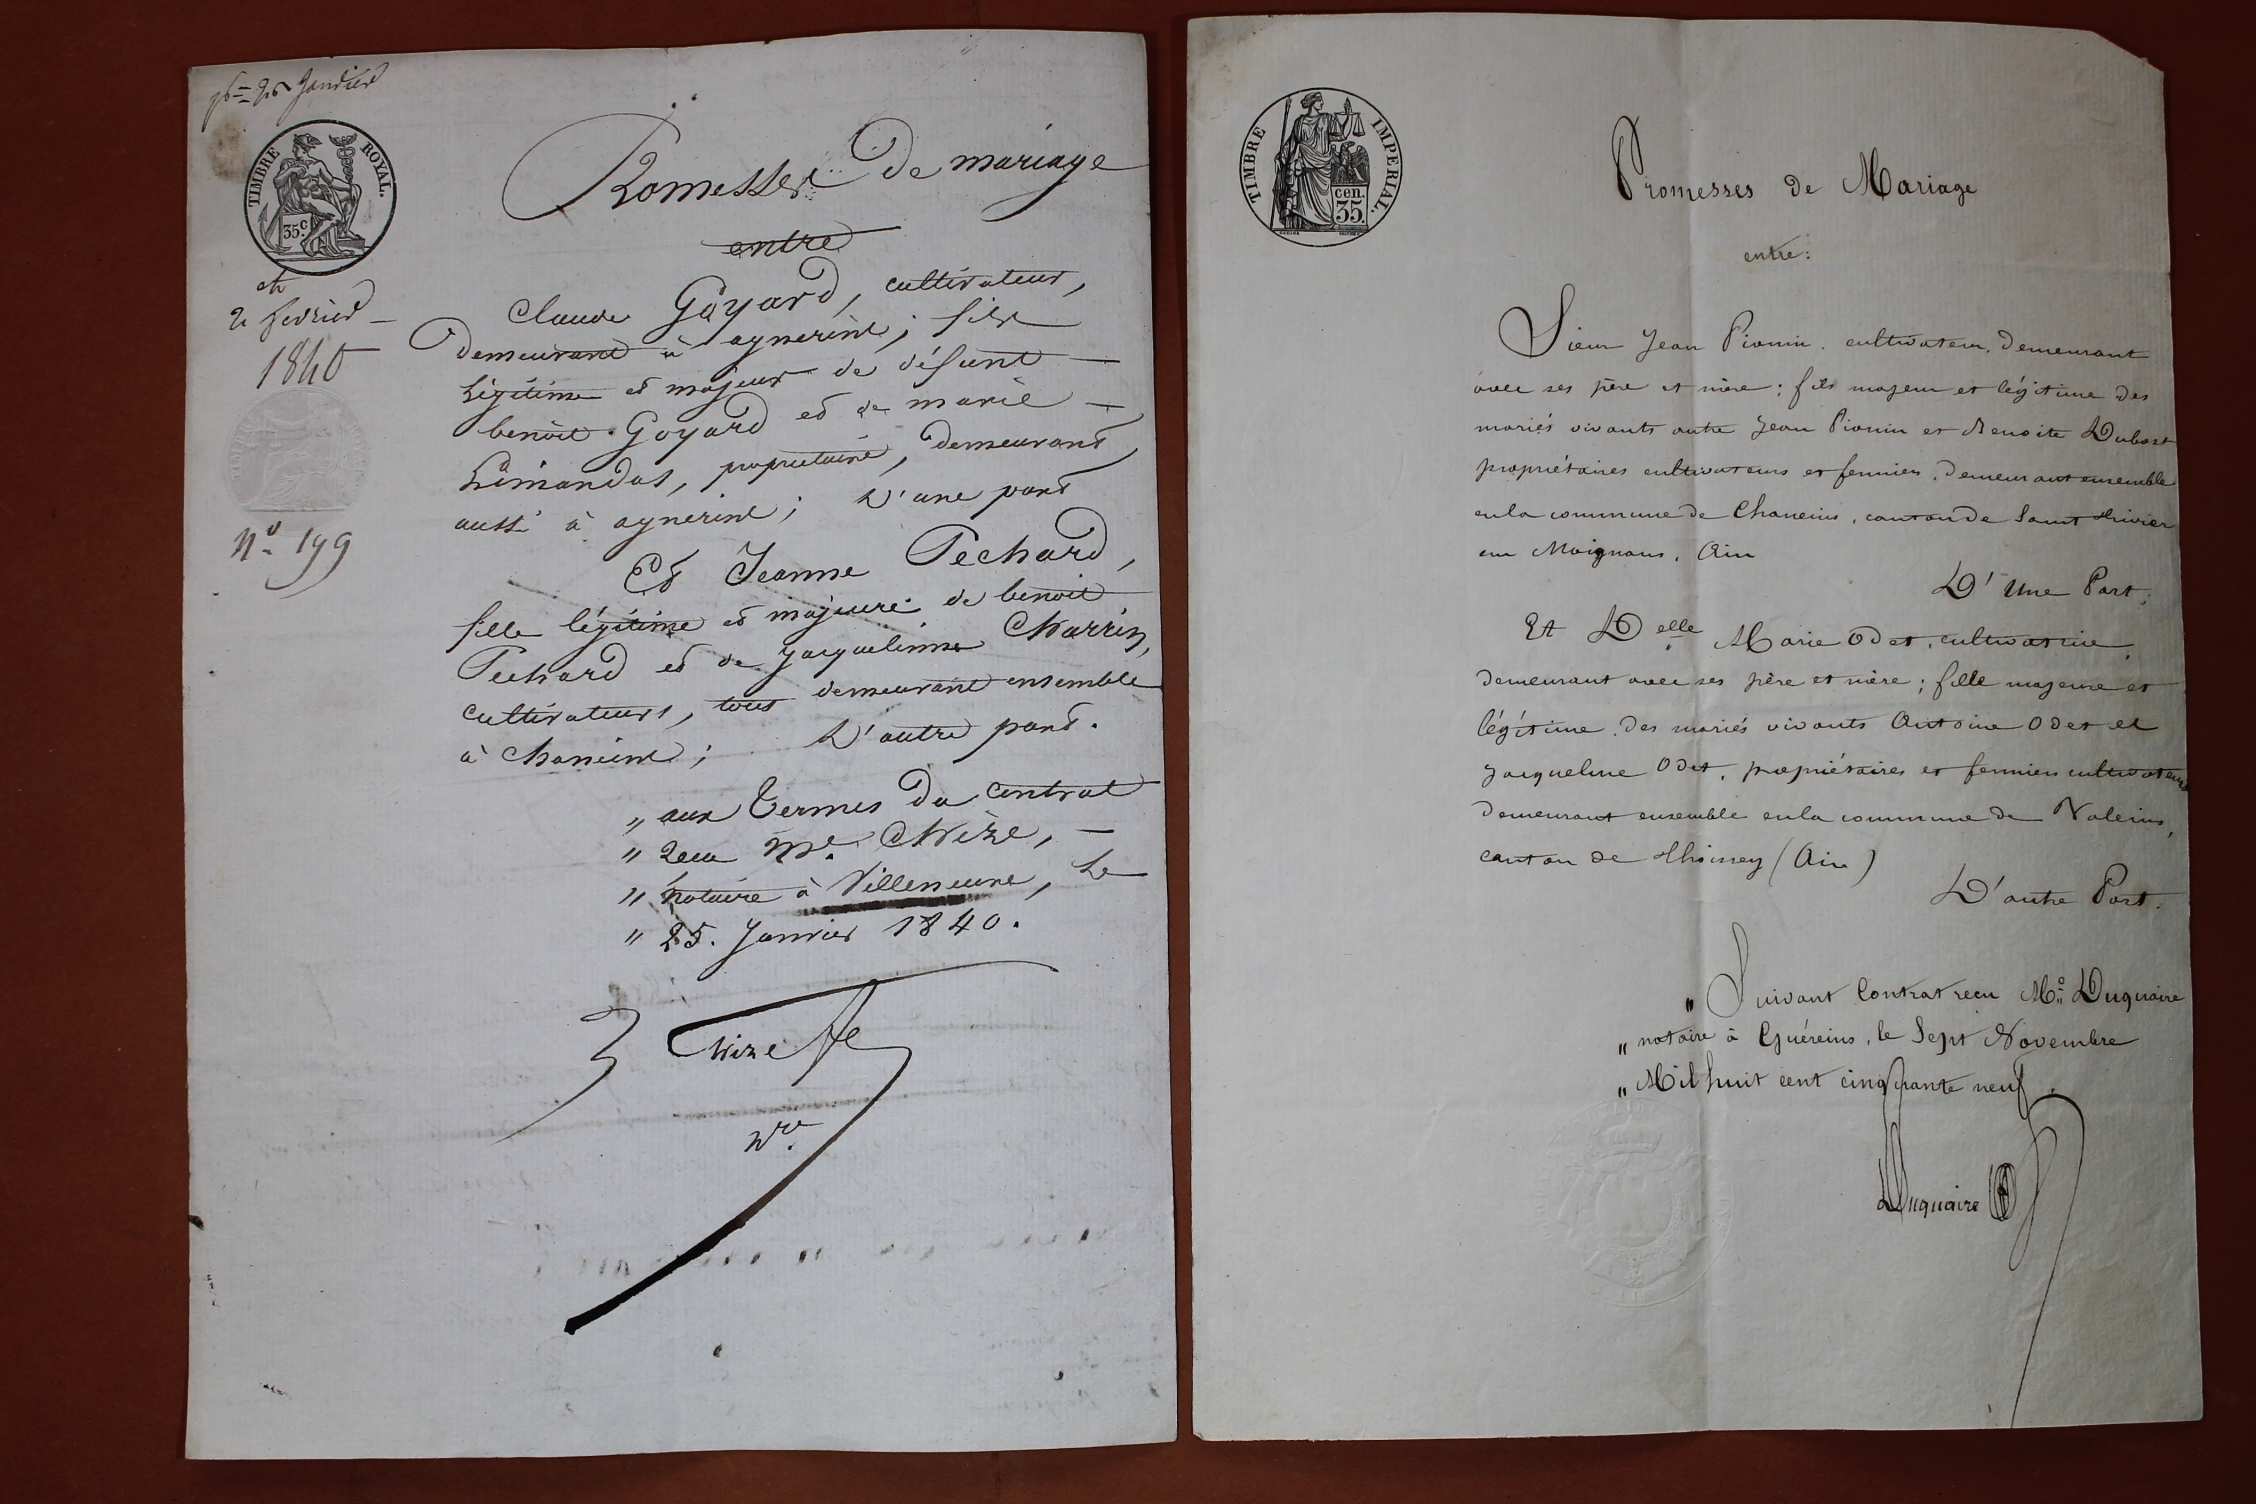 26 Janvier
TIMBRE ROYAL.
35 c.
et
2 fevrier
1840
N° 199
Promesses de mariage
entre
Claude Goyard, cultivateur,
demeurant à aynerins; fils
Légitime et majeur de défunt
benoit Goyard et de marie
Limandas, propriétaire, demeurant
aussi à aynerins; D'une part
Et Jeanne Pechard,
fille légitime et majeure de benoit
Pechard et de jacquelinne Charrin,
cultivateurs, tous demeurant ensemble
à Chaneins; D'autre part.
" aux termes du contrat
" recu Me. Chize,
" notaire à Villeneuve, Le
" 25. Janvier 1840.
Chize
Nre.
TIMBRE IMPERIAL.
cen.
35.
Promesses de Mariage
entre:
Sieur Jean Pionin, cultivateur, demeurant
avec ses père et mère; fils majeur et légitime des
mariés vivants autre Jean Pionin et Benoite Dubost
propriétaires cultivateurs et fermiers, demeurant ensemble
en la commune de Chaneins, canton de Saint Trivier
sur Moignans, Ain
D'Une Part;
Et Delle Marie Odet, cultivatrice,
demeurant avec ses père et mère; fille majeure et
légitime des mariés vivants Antoine Odet et
Jacqueline Odet, propriétaires et fermiers cultivateurs
demeurant ensemble en la commune de Valeins,
canton de Thoissey (Ain)
D'autre Part.
" Suivant Contrat recu Me Duquaire
" notaire à Guéreins, le Sept Novembre
" Mil huit cent cinquante neuf.
Duquaire